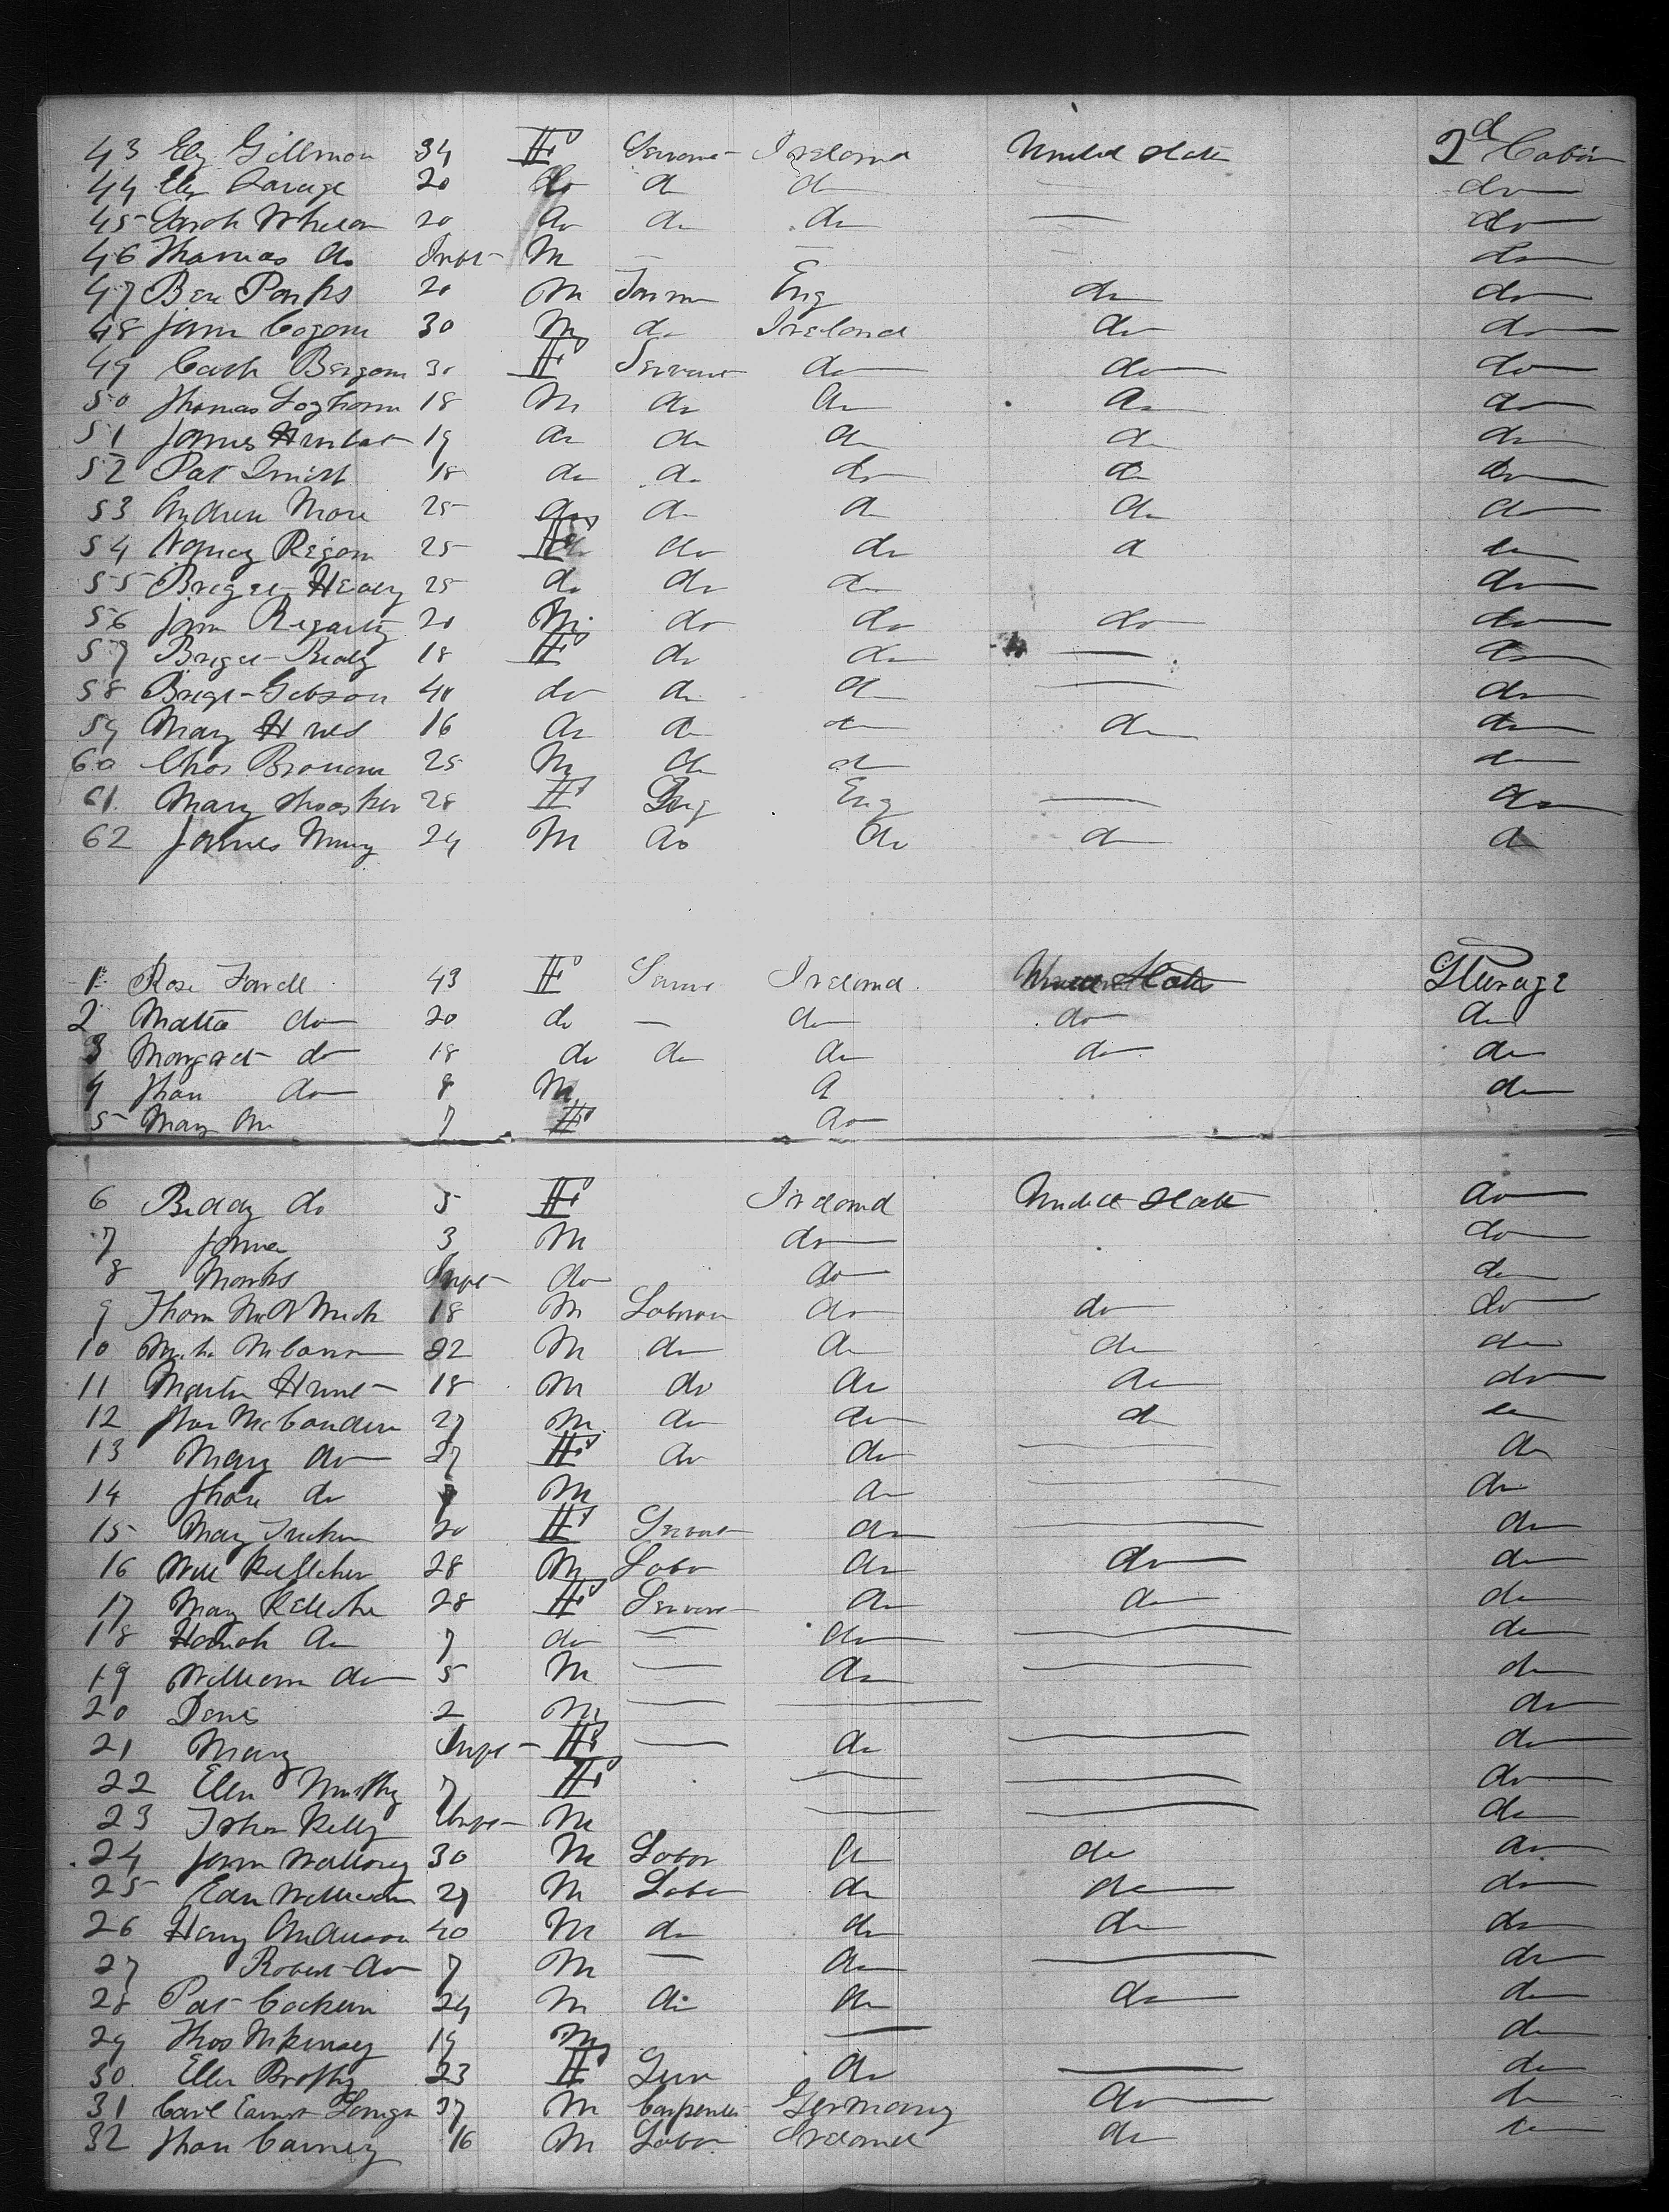 43 Eliz Gillman 34 F Servant Ireland United States 2d Cabin
44 Eliz Savage 20 do do do — do
45 Sarah Whelan 20 do do do — do
46 Thomas do Infat M — — — do
47 Ben Parks 20 M Farmer Eng do do
48 John Cogan 30 M do Ireland do do
49 Cath Bergan 30 F Servant do do do
50 Thomas 18 M do do do do
51 James 19 do do do do do
52 Pat Smith 18 do do do do do
53 Andrew More 25 do do do do do
54 Nancy Regan 25 F do do do do
55 Briget Healy 25 do do do do
56 John Regarty 20 M do do do do
57 Briget Realy 18 F do do — do
58 Briget Gibson 40 do do do — do
59 Mary 16 do do do do do
60 Chas 25 M do do do
61 Mary 28 F Eng — do
62 James 24 M do do do do
1 Rose Farrell 43 F Servt Ireland United States Sturage
2 Matta do 20 do — do do do
3 Margaret do 18 do do do do do
4 Jhon do 8 M do do
5 Mary do 7 F do
6 Biddy do 5 F Ireland United State do
7 James 3 M do do
8 Marks Infat do do do
9 Thom 18 M Labour do do do
10 22 M do do do do
11 Martin Hunt 18 M do do do do
12 Jhon 27 M do do do do
13 Mary do 27 F do do — do
14 Jhon do M do — do
15 Mary 20 F Servat do — do
16 Will Kelleher 28 M Labor do do do
17 Mary Kelleher 28 F Servant do do do
18 Hanah do 7 do — do — do
19 William do 5 M — do — do
20 Denis 2 M — — do
21 Mary Infat F — do — do
22 Ellen Murthy 7 F — — do
23 Kelly Infat M — — do
24 John 30 M Labor do do do
25 Edw 27 M Labor do do do
26 Henry Anderson 40 M do do do do
27 Robert do 7 M — do — do
28 Pat 24 M do do do do
29 Thos 19 M — do
30 Ellen Brophy 23 F Serv do — do
31 Carl Earnst 37 M Carpenter Germany do do
32 Jhon Carney 16 M Labor Ireland do do